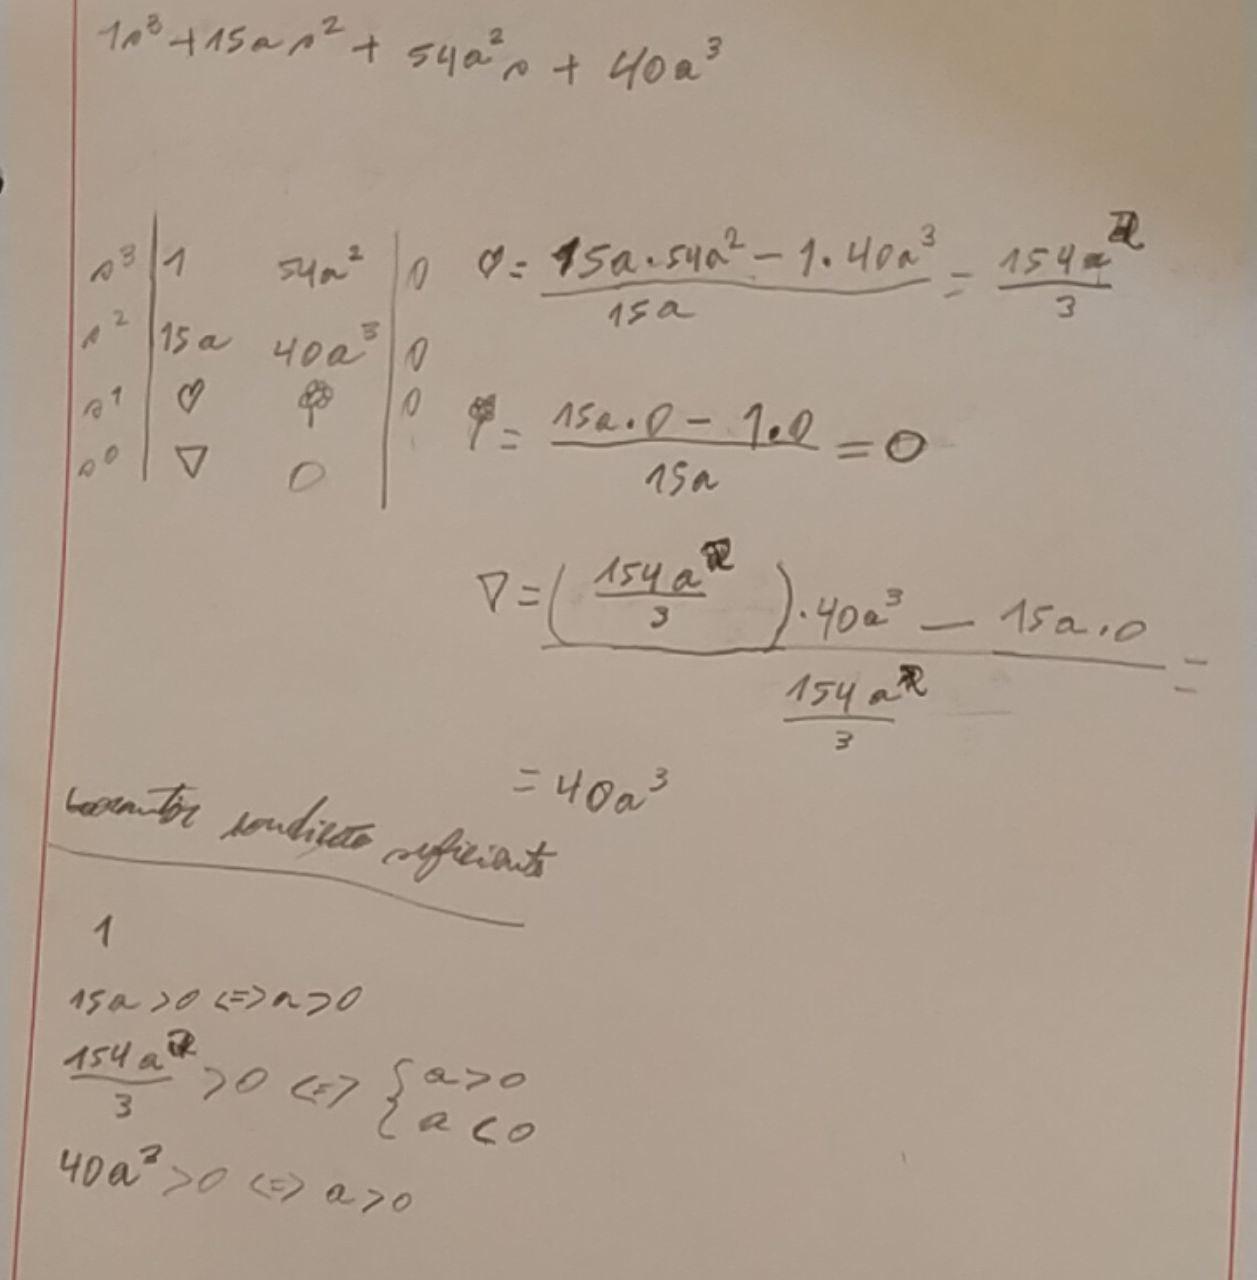 1s³ + 15as² + 54a²s + 40a³
s³ | 1 54a² | 0
s² | 15a 40a³ | 0
s¹ | ♡ ♣ | 0
s⁰ | ▽ 0 |
♡ = (15a·54a² − 1·40a³)/(15a) = 154a²/3
♣ = (15a·0 − 1·0)/(15a) = 0
▽ = ((154a²/3)·40a³ − 15a·0)/(154a²/3) =
= 40a³
suficiente
1
15a > 0 <=> a > 0
154a²/3 > 0 <=> { a > 0
a < 0
40a³ > 0 <=> a > 0